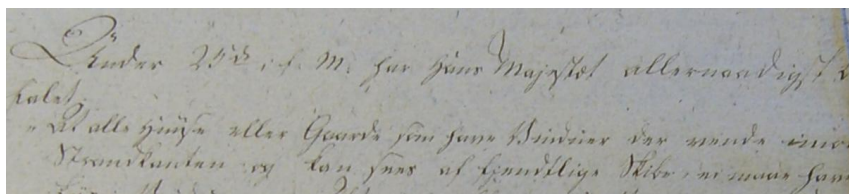 Under 25de i. f. M. har Hans Majestæt allernaadigst
falet.
"At alle Huuse eller Gaarde som have Vinduer der vende imo
Strandkanten og kan sees af fjendtlige Skibe, ei maae hav